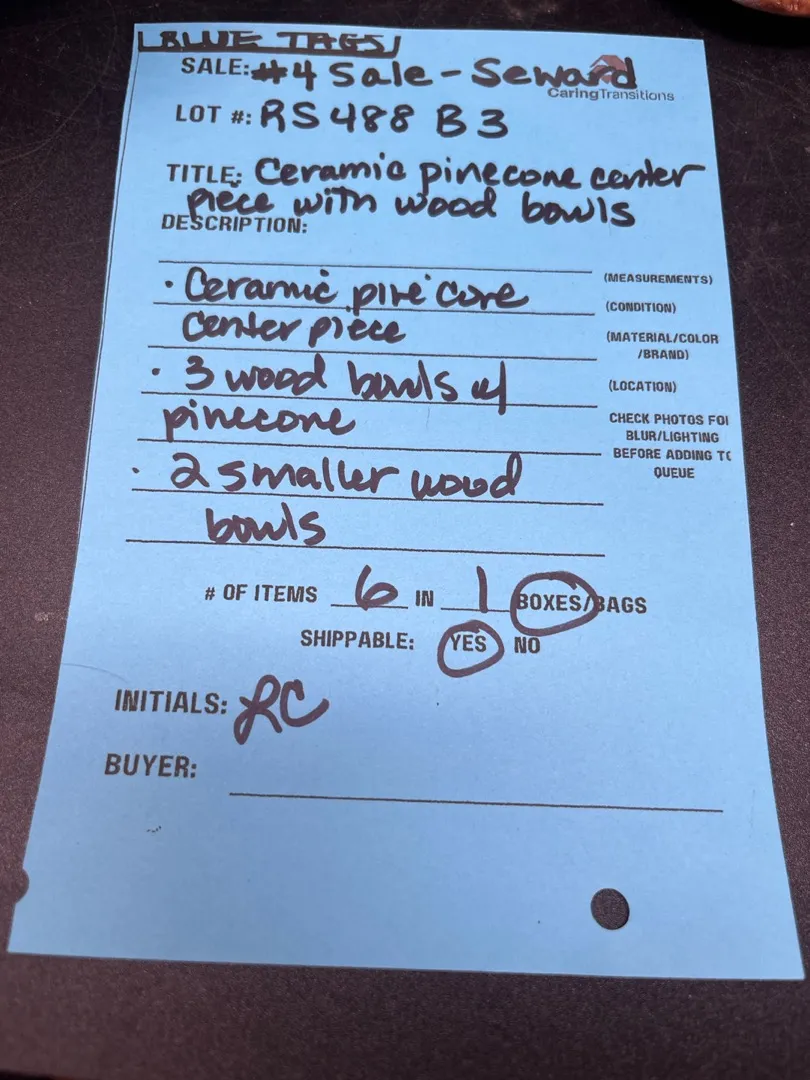 BLUE TAGS
SALE: #4 Sale - Seward
CaringTransitions
LOT #: RS488 B3
TITLE: Ceramic pinecone center
piece with wood bowls
DESCRIPTION:
(MEASUREMENTS)
· Ceramic pine cone
(CONDITION)
center piece
(MATERIAL/COLOR
/BRAND)
· 3 wood bowls w/
(LOCATION)
pinecone
CHECK PHOTOS FOR
BLUR/LIGHTING
BEFORE ADDING TO
QUEUE
· 2 smaller wood
bowls
# OF ITEMS 6 IN 1 BOXES/BAGS
SHIPPABLE: YES NO
INITIALS: RC
BUYER: